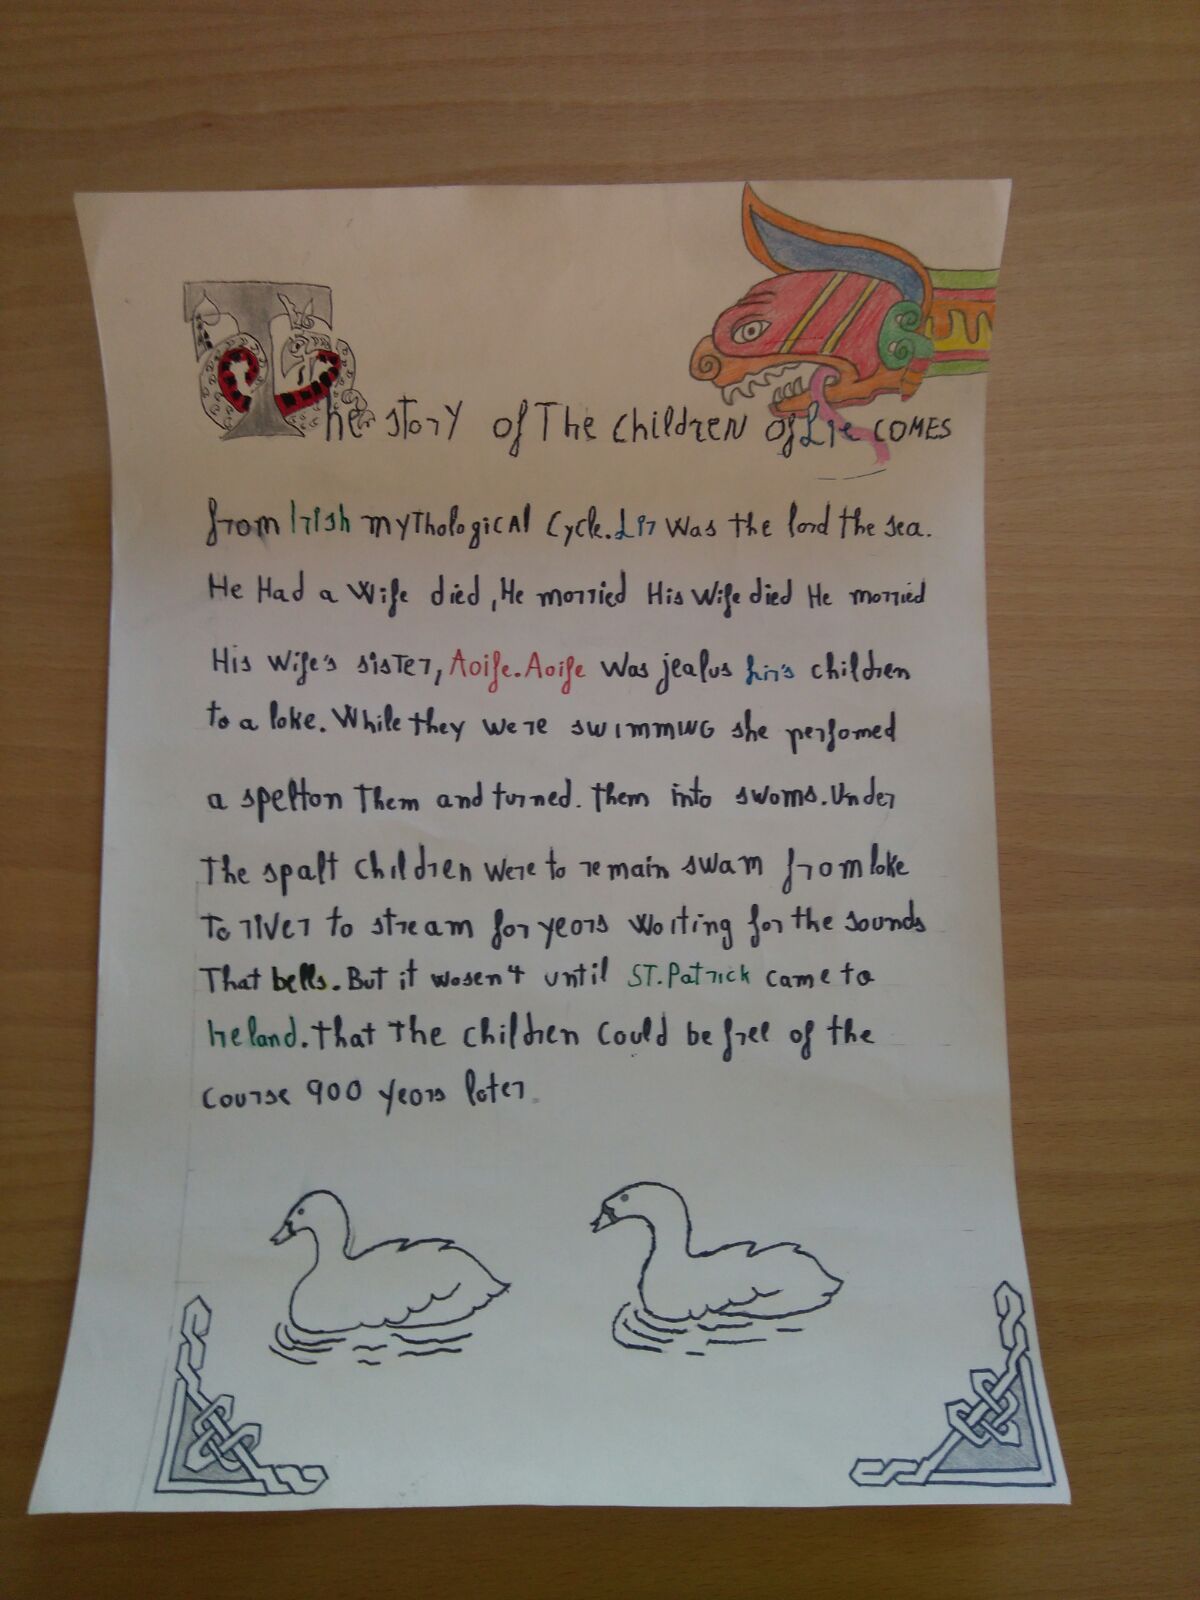 The story of The children of Lir COMES
from Irish mythological Cycle. Lir was the lord the sea.
He Had a Wife died, He morried His Wife died He morried
His Wife's sister, Aoife. Aoife was jealus Lir's children
to a loke. While they were swimmwg she perfomed
a spellon Them and turned. them into swoms. Under
The spalt children were to remain swam from loke
To river to stream for yeors woiting for the sounds
That bells. But it wosen't until ST. Patrick came to
Ireland. that the children could be free of the
course 900 yeors loter.